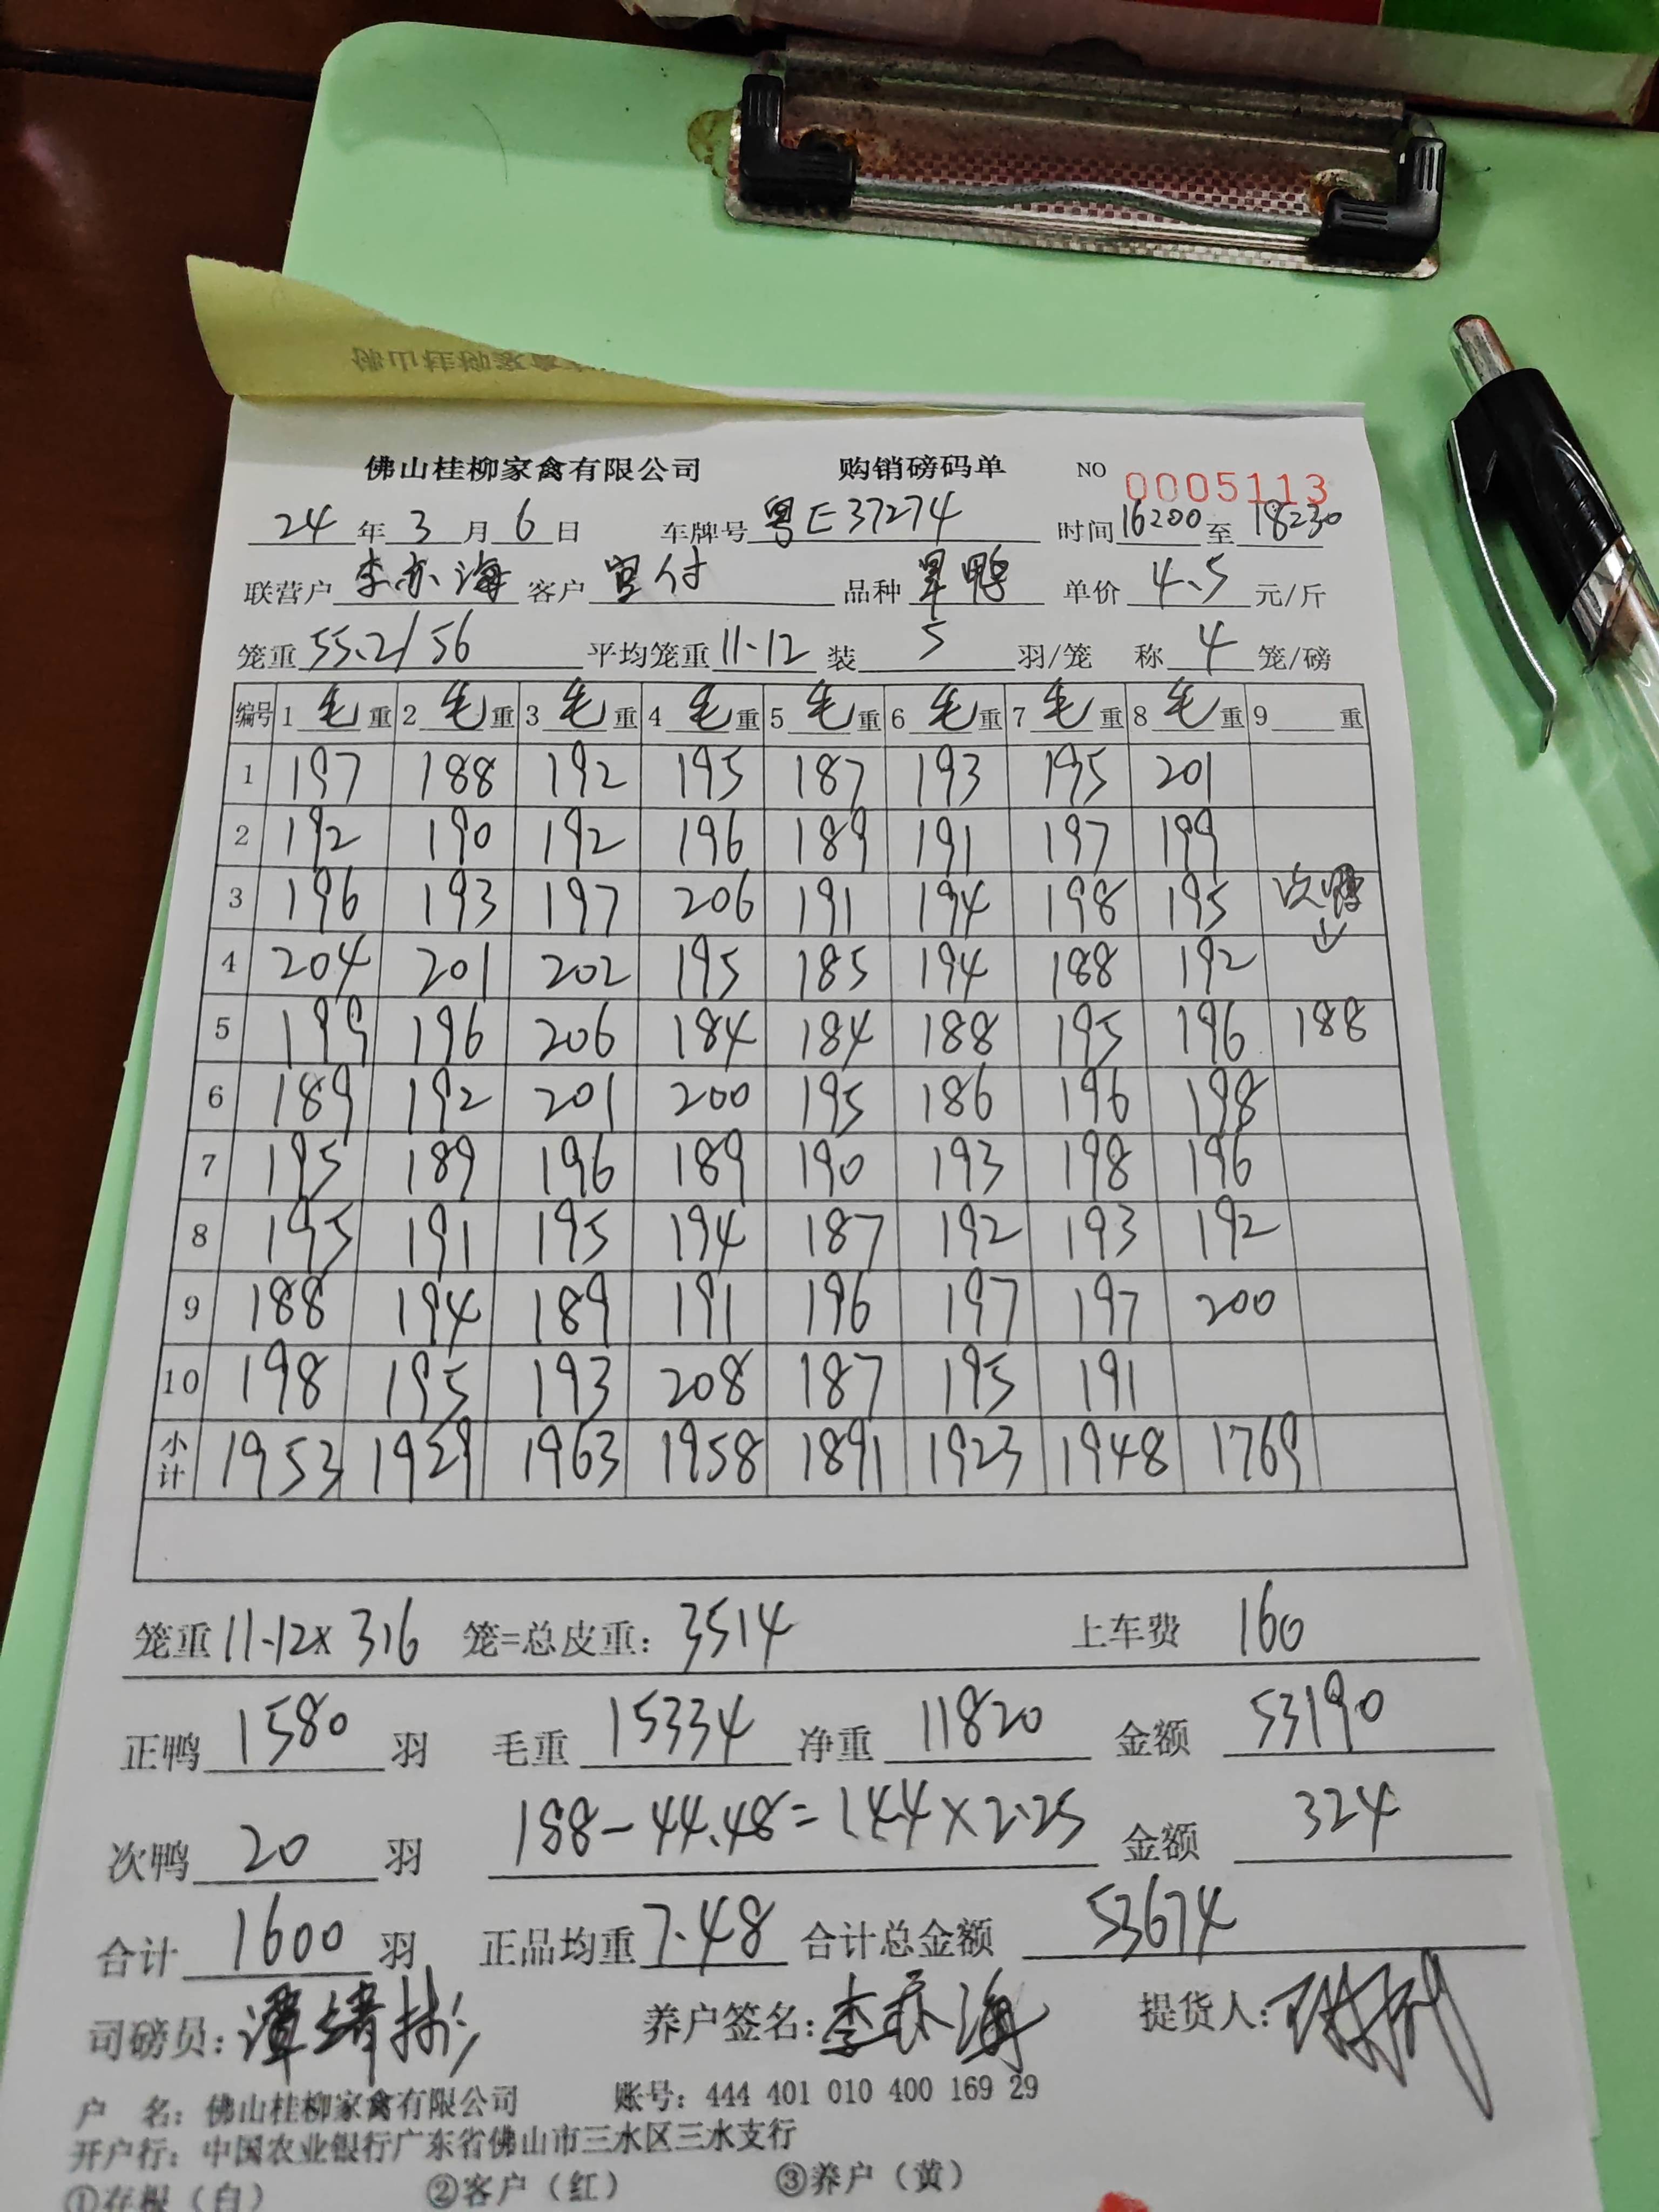 佛山桂柳家禽有限公司 购销磅码单 NO 0005113
24年3月6日 车牌号 粤E37274 时间 16:00 至 18:30
联营户 李亦海 客户 宜付 品种 旱鸭 单价 4.5 元/斤
笼重 55.2/56 平均笼重 11.12 装 5 羽/笼 称 4 笼/磅
编号 1 毛 重 2 毛 重 3 毛 重 4 毛 重 5 毛 重 6 毛 重 7 毛 重 8 毛 重 9 重
1 197 188 192 195 187 193 195 201
2 192 190 192 196 189 191 197 199
3 196 193 197 206 191 194 198 195 次鸭
4 204 201 202 195 185 194 188 192 ↓
5 199 196 206 184 184 188 195 196 188
6 189 192 201 200 195 186 196 198
7 195 189 196 189 190 193 198 196
8 195 191 195 194 187 192 193 192
9 188 194 189 191 196 197 197 200
10 198 195 193 208 187 195 191
小计 1953 1929 1963 1958 1891 1923 1948 1769
笼重 11.12×316 笼=总皮重: 3514 上车费 160
正鸭 1580 羽 毛重 15334 净重 11820 金额 53190
次鸭 20 羽 188-44.48=144×2.25 金额 324
合计 1600 羽 正品均重 7.48 合计总金额 53674
司磅员: 谭绪彬 养户签名: 李亦海 提货人:
户 名: 佛山桂柳家禽有限公司 账号: 444 401 010 400 169 29
开户行: 中国农业银行广东省佛山市三水区三水支行
①存根（白） ②客户（红） ③养户（黄）